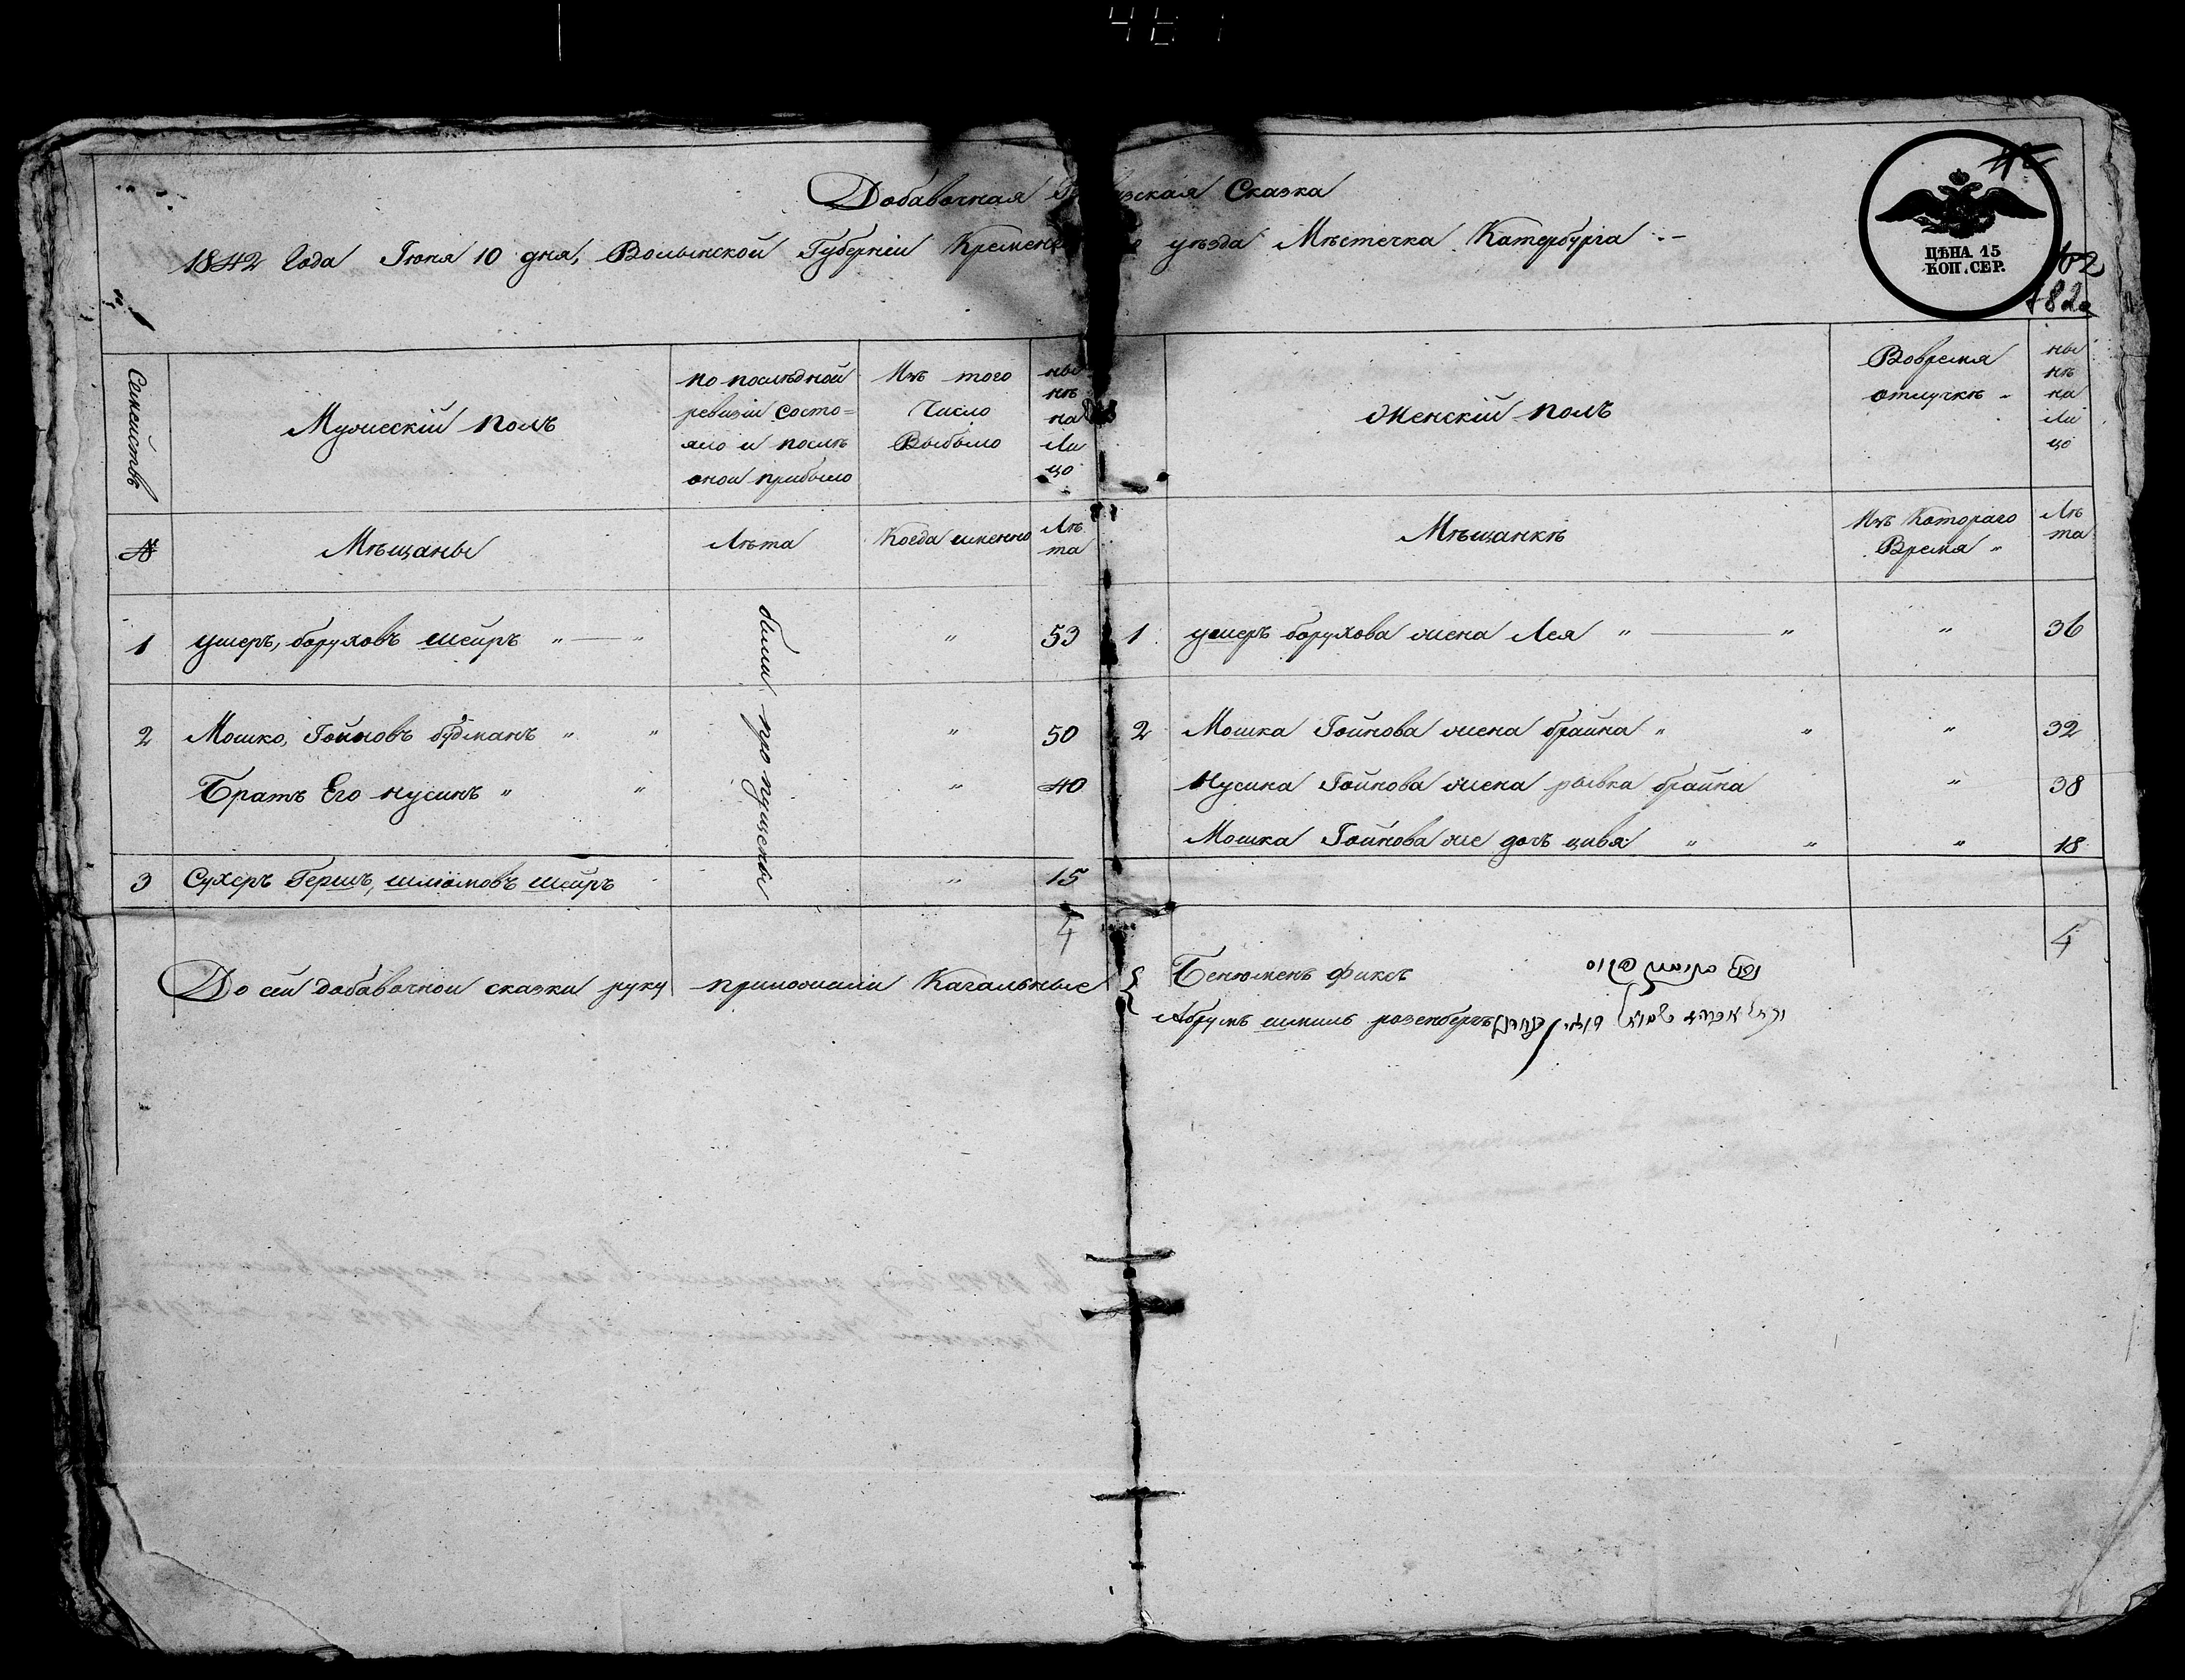 Добавочная Сказка
1842 Года Июня 10 дня, Волынской Губерніи уѣзда Мѣстечка Катербургіа
ЦѢНА 15
КОП. СЕР.
62
182
Семействъ
Мужескій полъ
По послѣдной
ревизіи состо=
яло и послѣ
оной прибыло
Изъ того
Число
Выбыло
ны
нѣ
на
ли
цо
Женскій полъ
Вовремя
отлучкѣ
ны
нѣ
на
ли
цо
№
Мѣщаны
Лѣта
Когда именно
Лѣ
та
Мѣщанкѣ
Изъ Котораго
Время "
Лѣ
та
были пропущены
1 Ушеръ, боруховъ шейръ " — " " 53 1 Ушеръ борухова жена Лея " — " " 36
2 Мошко, Гойновъ будманъ " " " 50 2 Мошка Гойнова жена брайна " " " 32
Братъ Его нусинъ " " " 40 Нусина Гойнова жена рывка брайна " 38
Мошка Гойнова же дочь цивя " " " 18
3 Сухеръ Гершъ, шлiомовъ шейръ " 15
4 4
До сей добавочной сказки руку приложили Кагальные { Бенюменъ фиксъ
Абрумъ шмиль розенбергъ